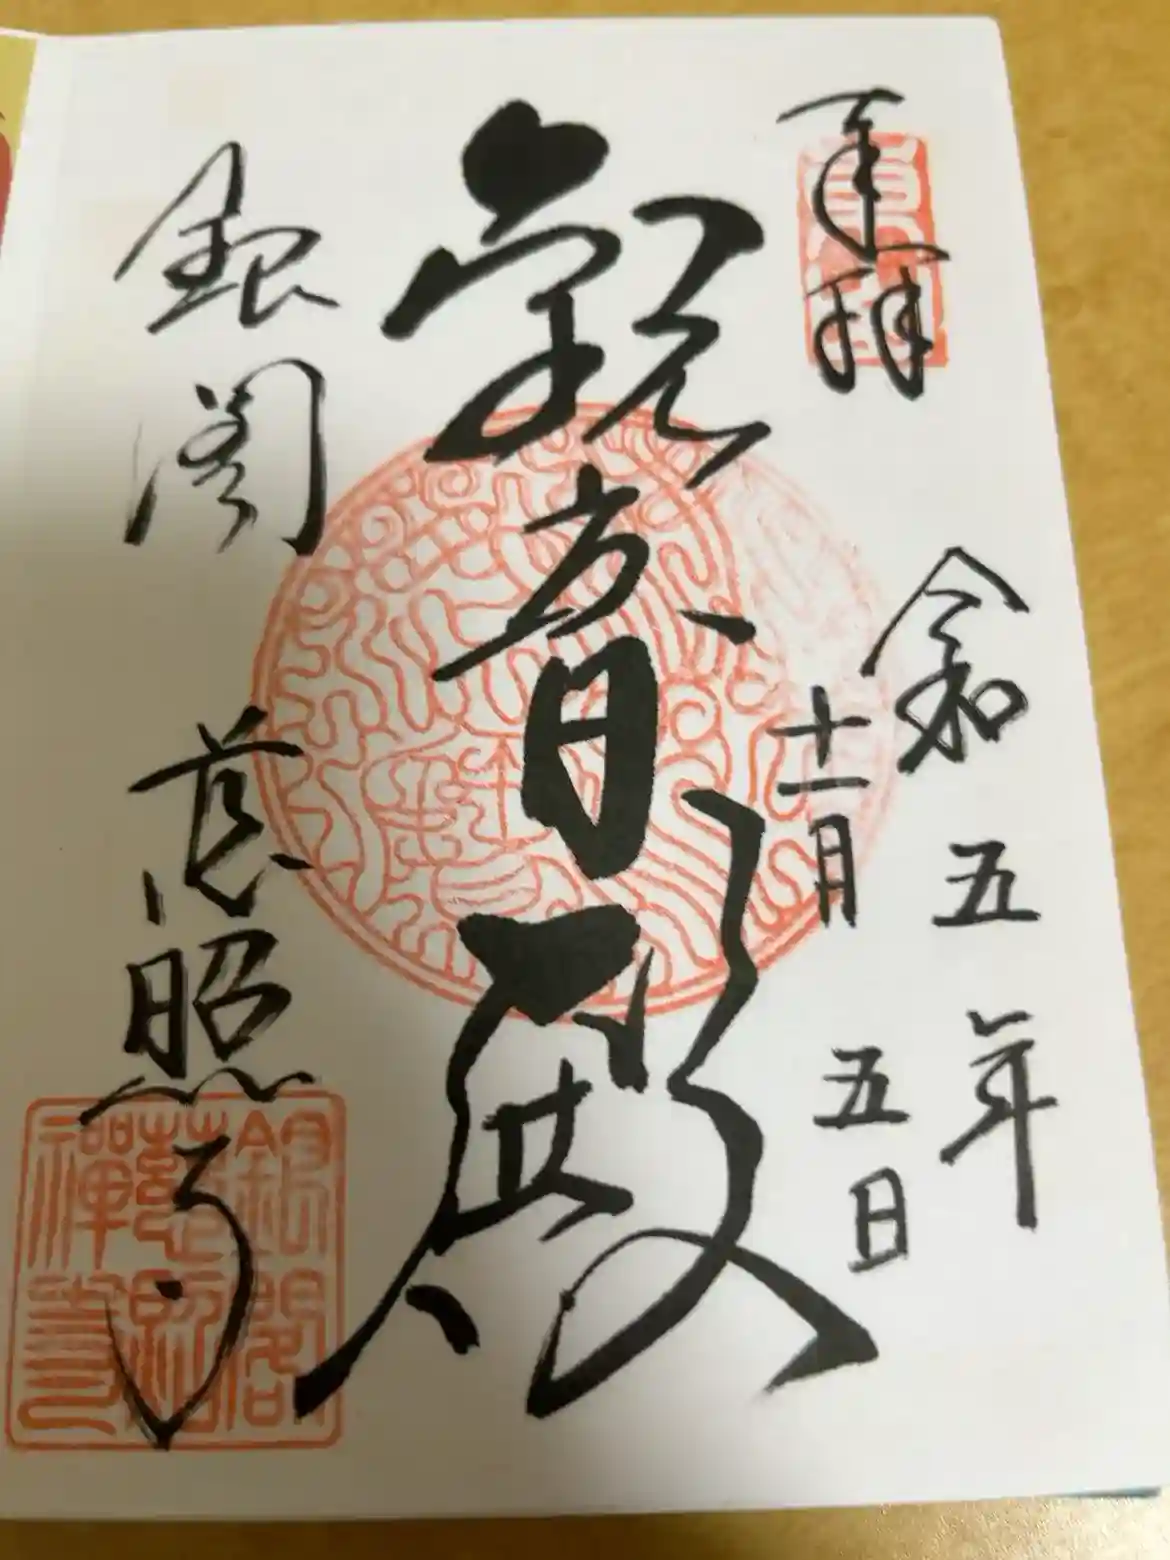 奉拝
令和五年
十一月五日
観音殿
銀閣 慈照寺
銀閣
慈照
禅寺